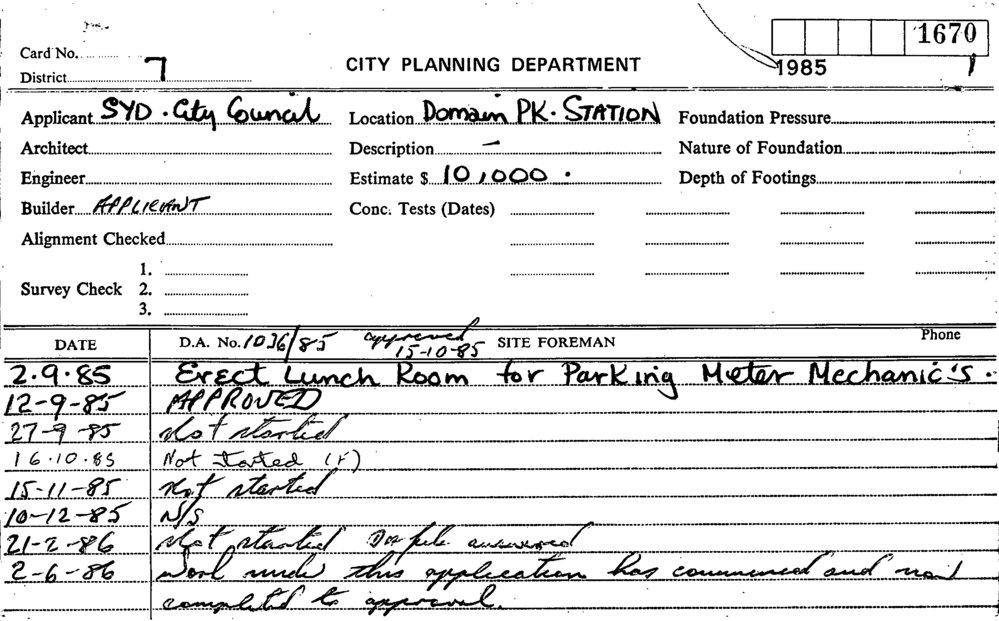 1670
Card No.
1985
1
District 7
CITY PLANNING DEPARTMENT
Applicant SYD. City Council Location Domain PK. STATION Foundation Pressure
Architect Description — Nature of Foundation
Engineer Estimate $ 10,000. Depth of Footings
Builder APPLICANT Conc. Tests (Dates)
Alignment Checked
1.
Survey Check 2.
3.
DATE D.A. No. 1036/85 approved 15-10-85 SITE FOREMAN Phone
2.9.85 Erect Lunch Room for Parking Meter Mechanic's.
12-9-85 APPROVED
27-9-85 Not started
16.10.85 Not started
15-11-85 Not started
10-12-85 N/S
21-2-86 Not started
2-6-86 Work under this application has commenced and now
completed to approval.